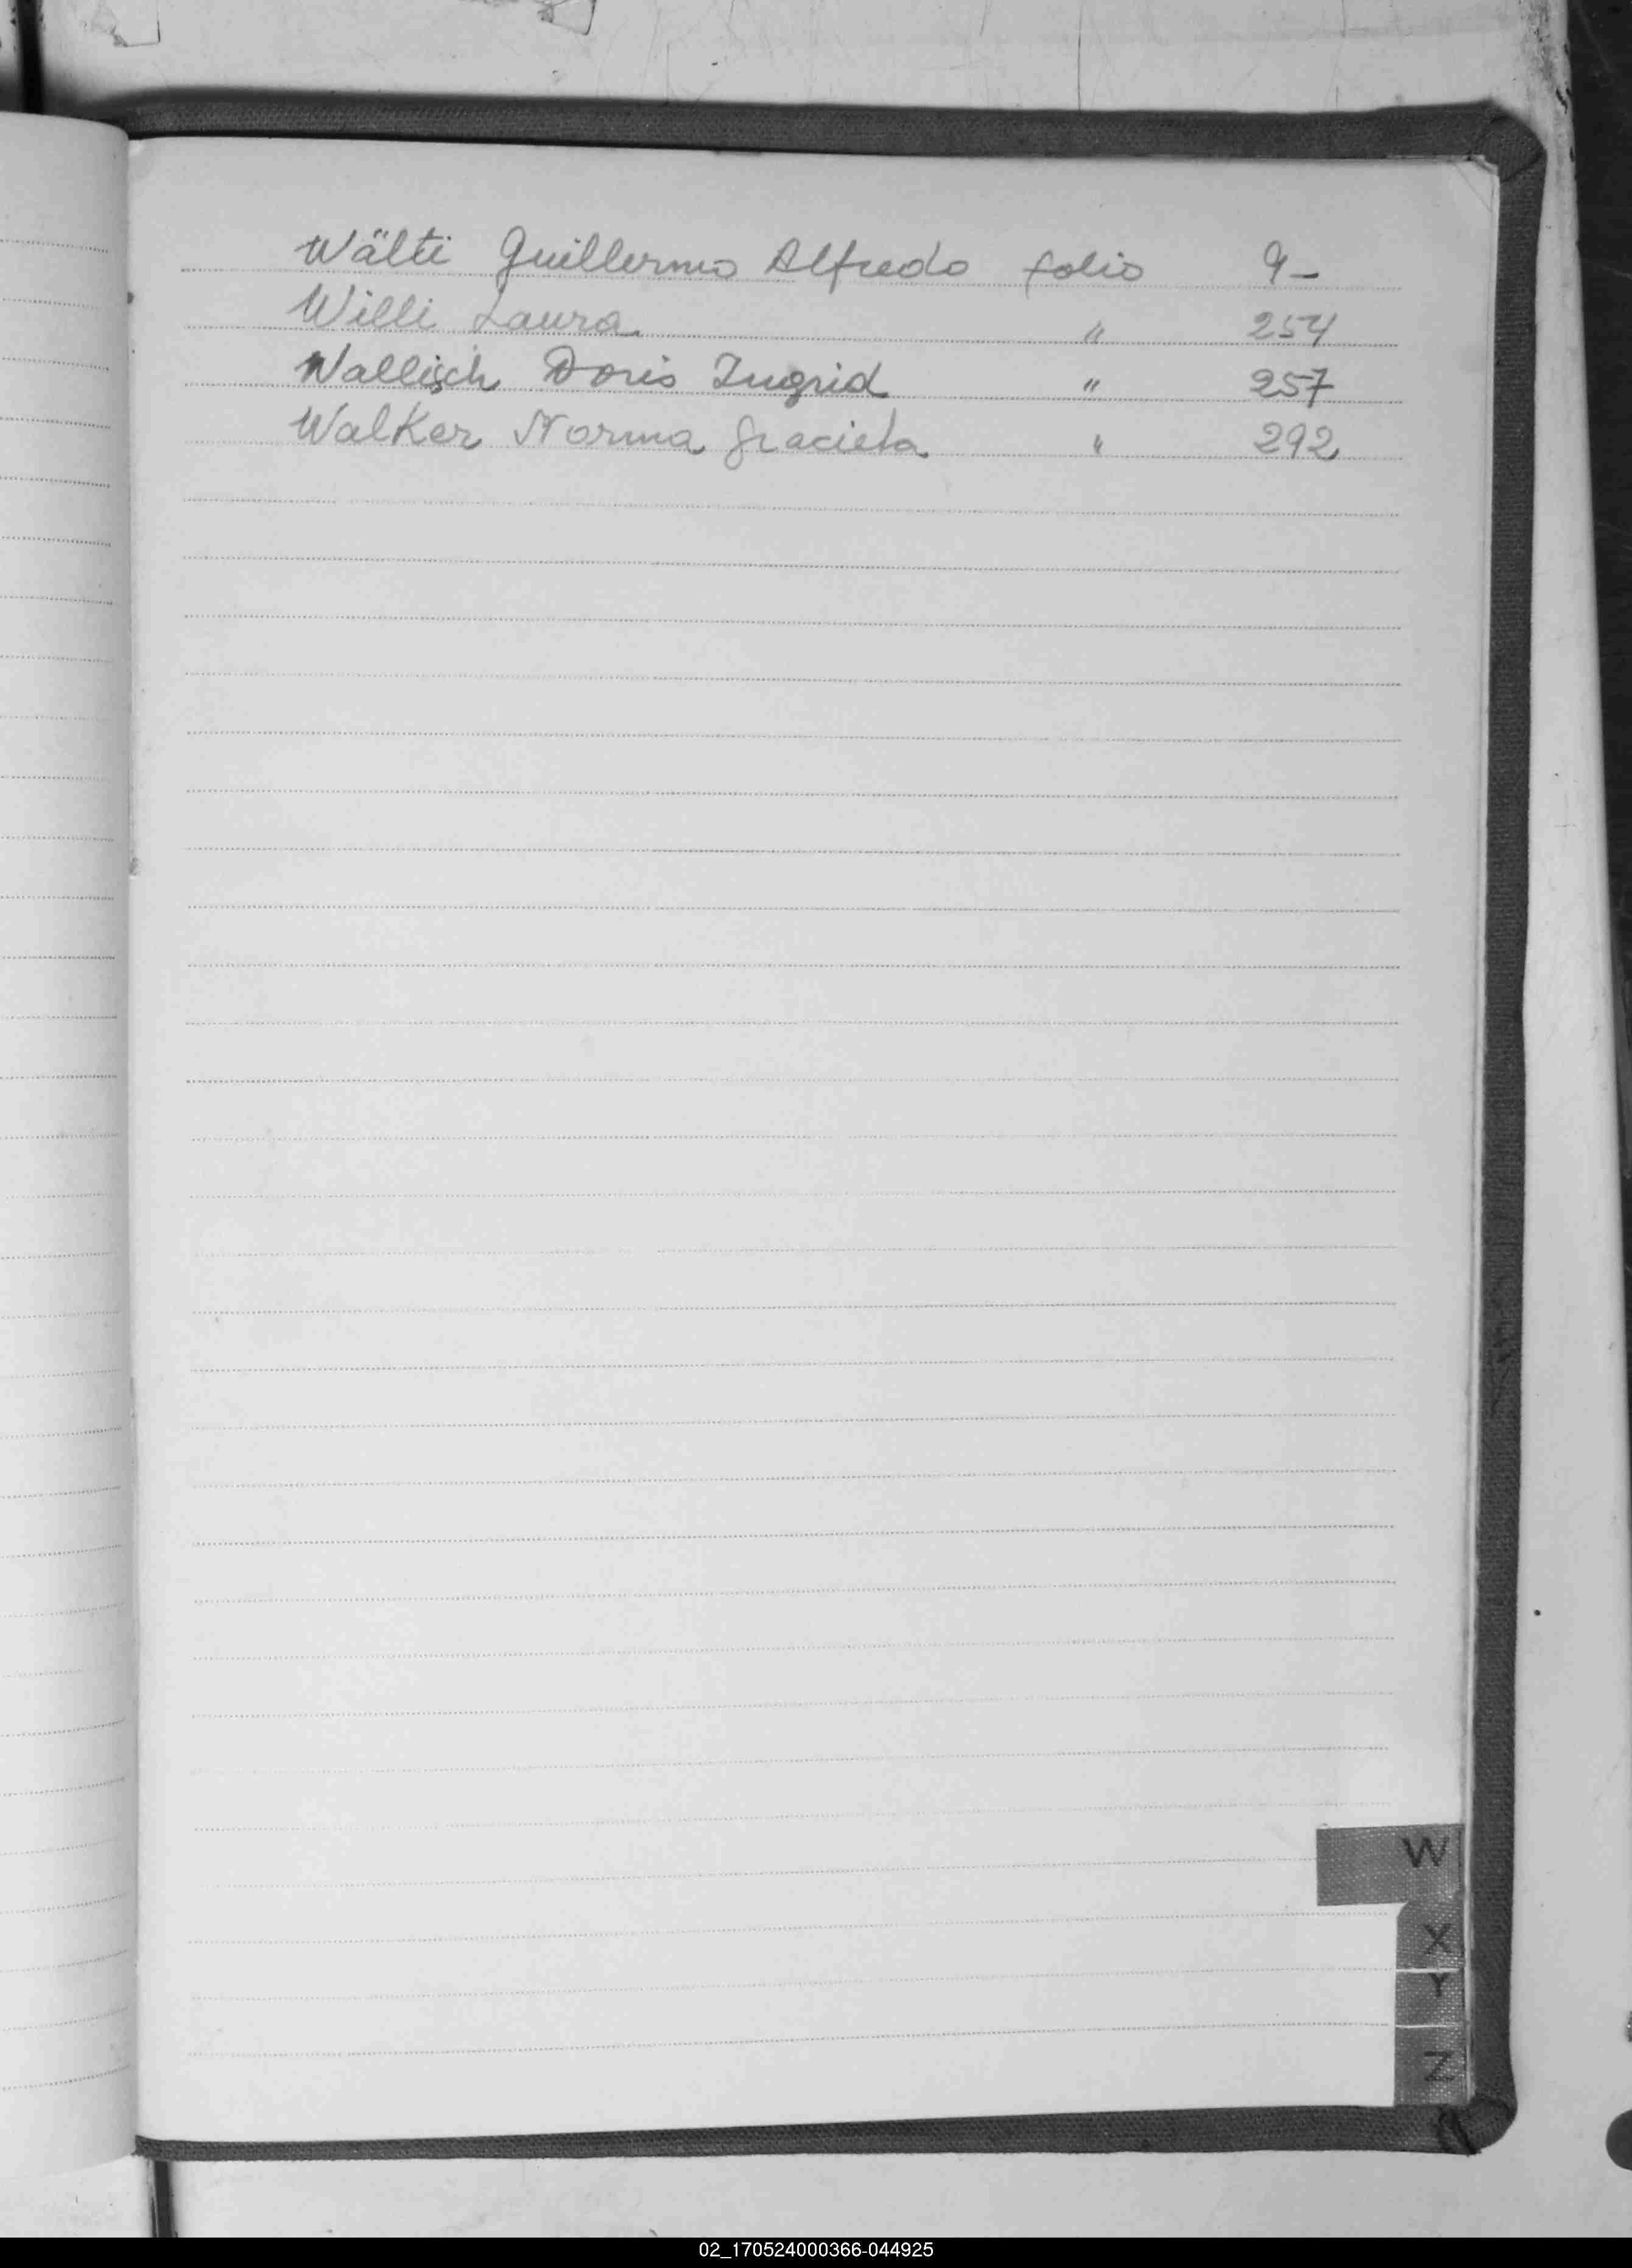 Wälti Guillermo Alfredo folio 9-
Willi Laura " 254
Wallisch Doris Ingrid " 257
Walker Norma Graciela " 292
W
X
Y
Z
02_170524000366-044925